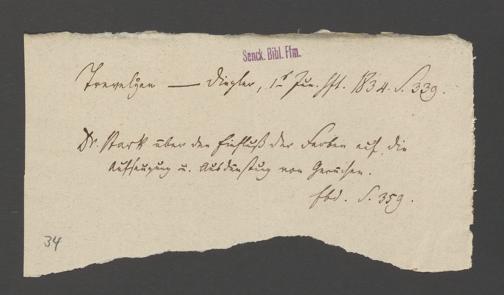 Senck. Bibl. Ffm.
— Dingler, 1s Jun. Hft. 1834. S. 339.
Dr. Stark über den Einfluß der Farben auf die
Aufsaugung u. Ausdünstung von Gerüchen.
Ebd. S. 359.
34